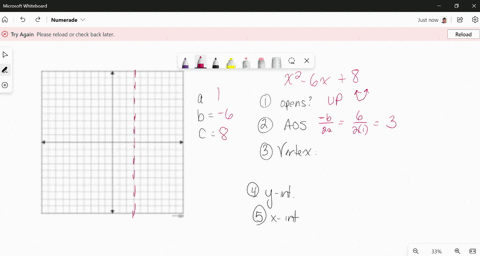 Microsoft Whiteboard
Numerade
Just now
Try Again Please reload or check back later.
Reload
x² - 6x + 8
a 1
b = -6
c = 8
① opens? UP
② AOS -b/2a = 6/2(1) = 3
③ Vertex:
④ y-int.
⑤ x-int
33%